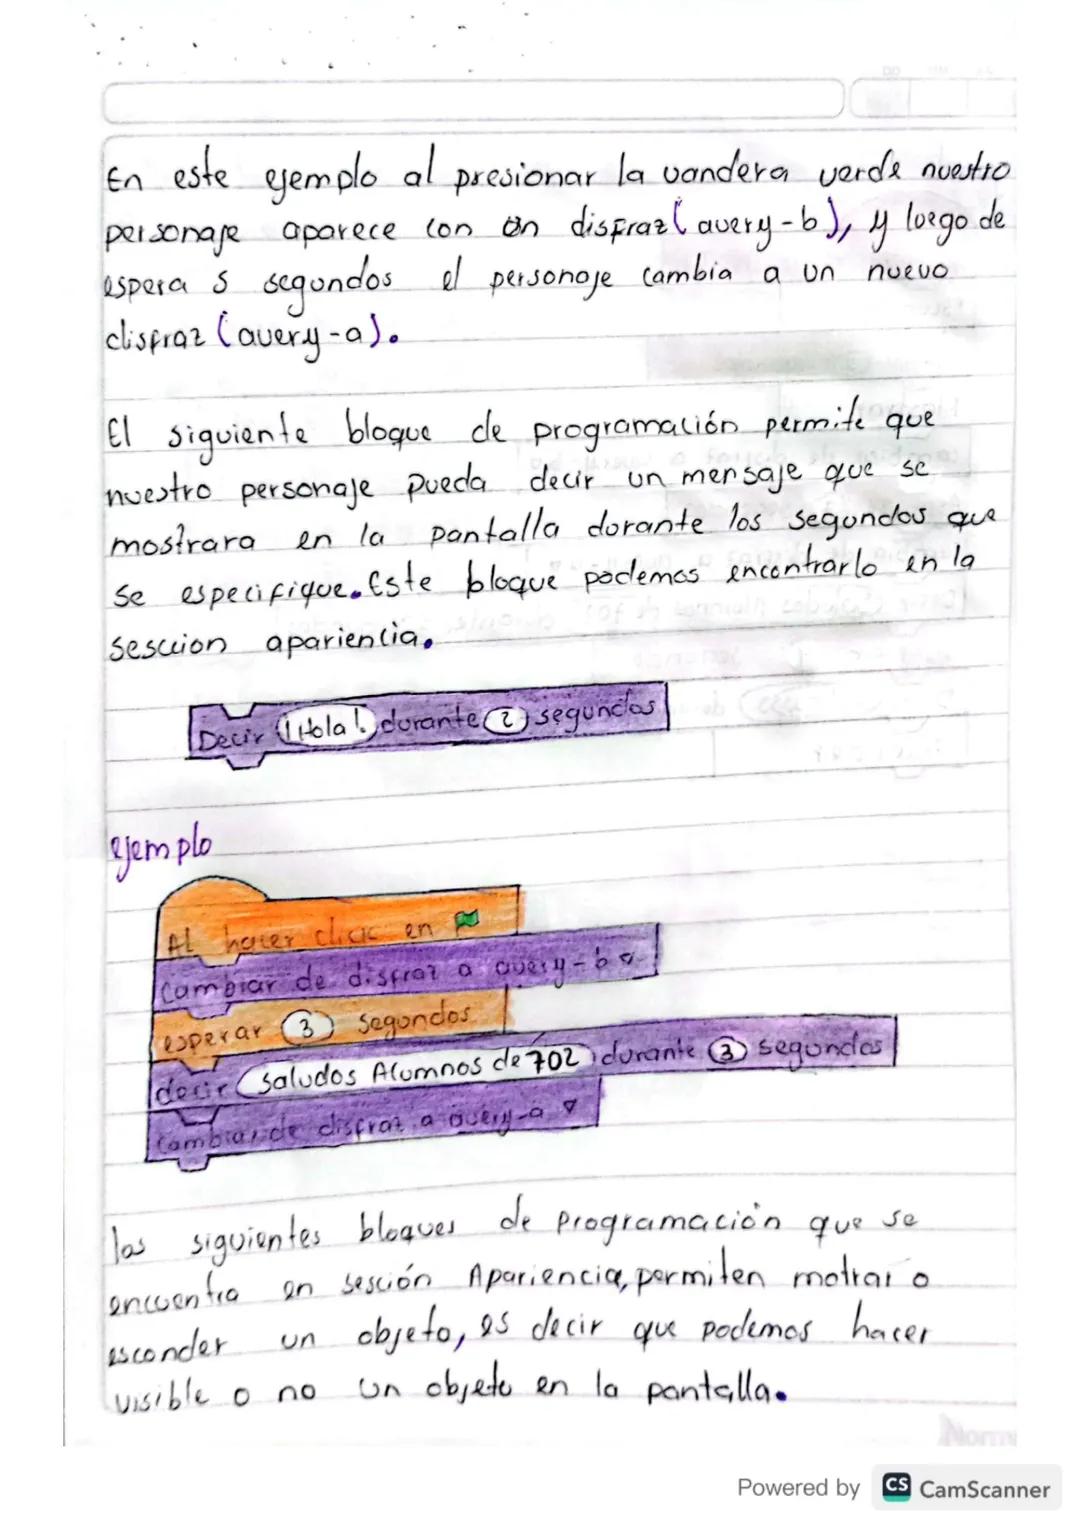 En este ejemplo al presionar la vandera verde nuestro
personaje aparece con un disfraz (avery-b), y luego de
espera 5 segundos el personaje cambia a un nuevo
disfraz (avery-a).
El siguiente bloque de programación permite que
nuestro personaje pueda decir un mensaje que se
mostrara en la pantalla durante los segundos que
se especifique. Este bloque podemos encontrarlo en la
sescuion apariencia.
Decir ¡Hola! durante 2 segundos
ejemplo
Al hacer clic en
cambiar de disfraz a avery-b
esperar 3 segundos
decir saludos Alumnos de 702 durante 3 segundos
cambiar de disfraz a avery-a
las siguientes bloques de programación que se
encuentra en sesción Apariencia, permiten motrar o
esconder un objeto, es decir que podemos hacer
visible o no un objeto en la pantalla.
Norma
Powered by CS CamScanner